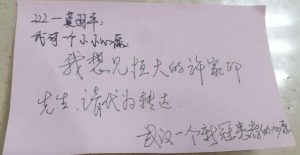 222一莫羽平:
我有一个小小心愿,
我想见恒大的许家印
先生,请代为转达.
武汉一个新冠患者的心愿.